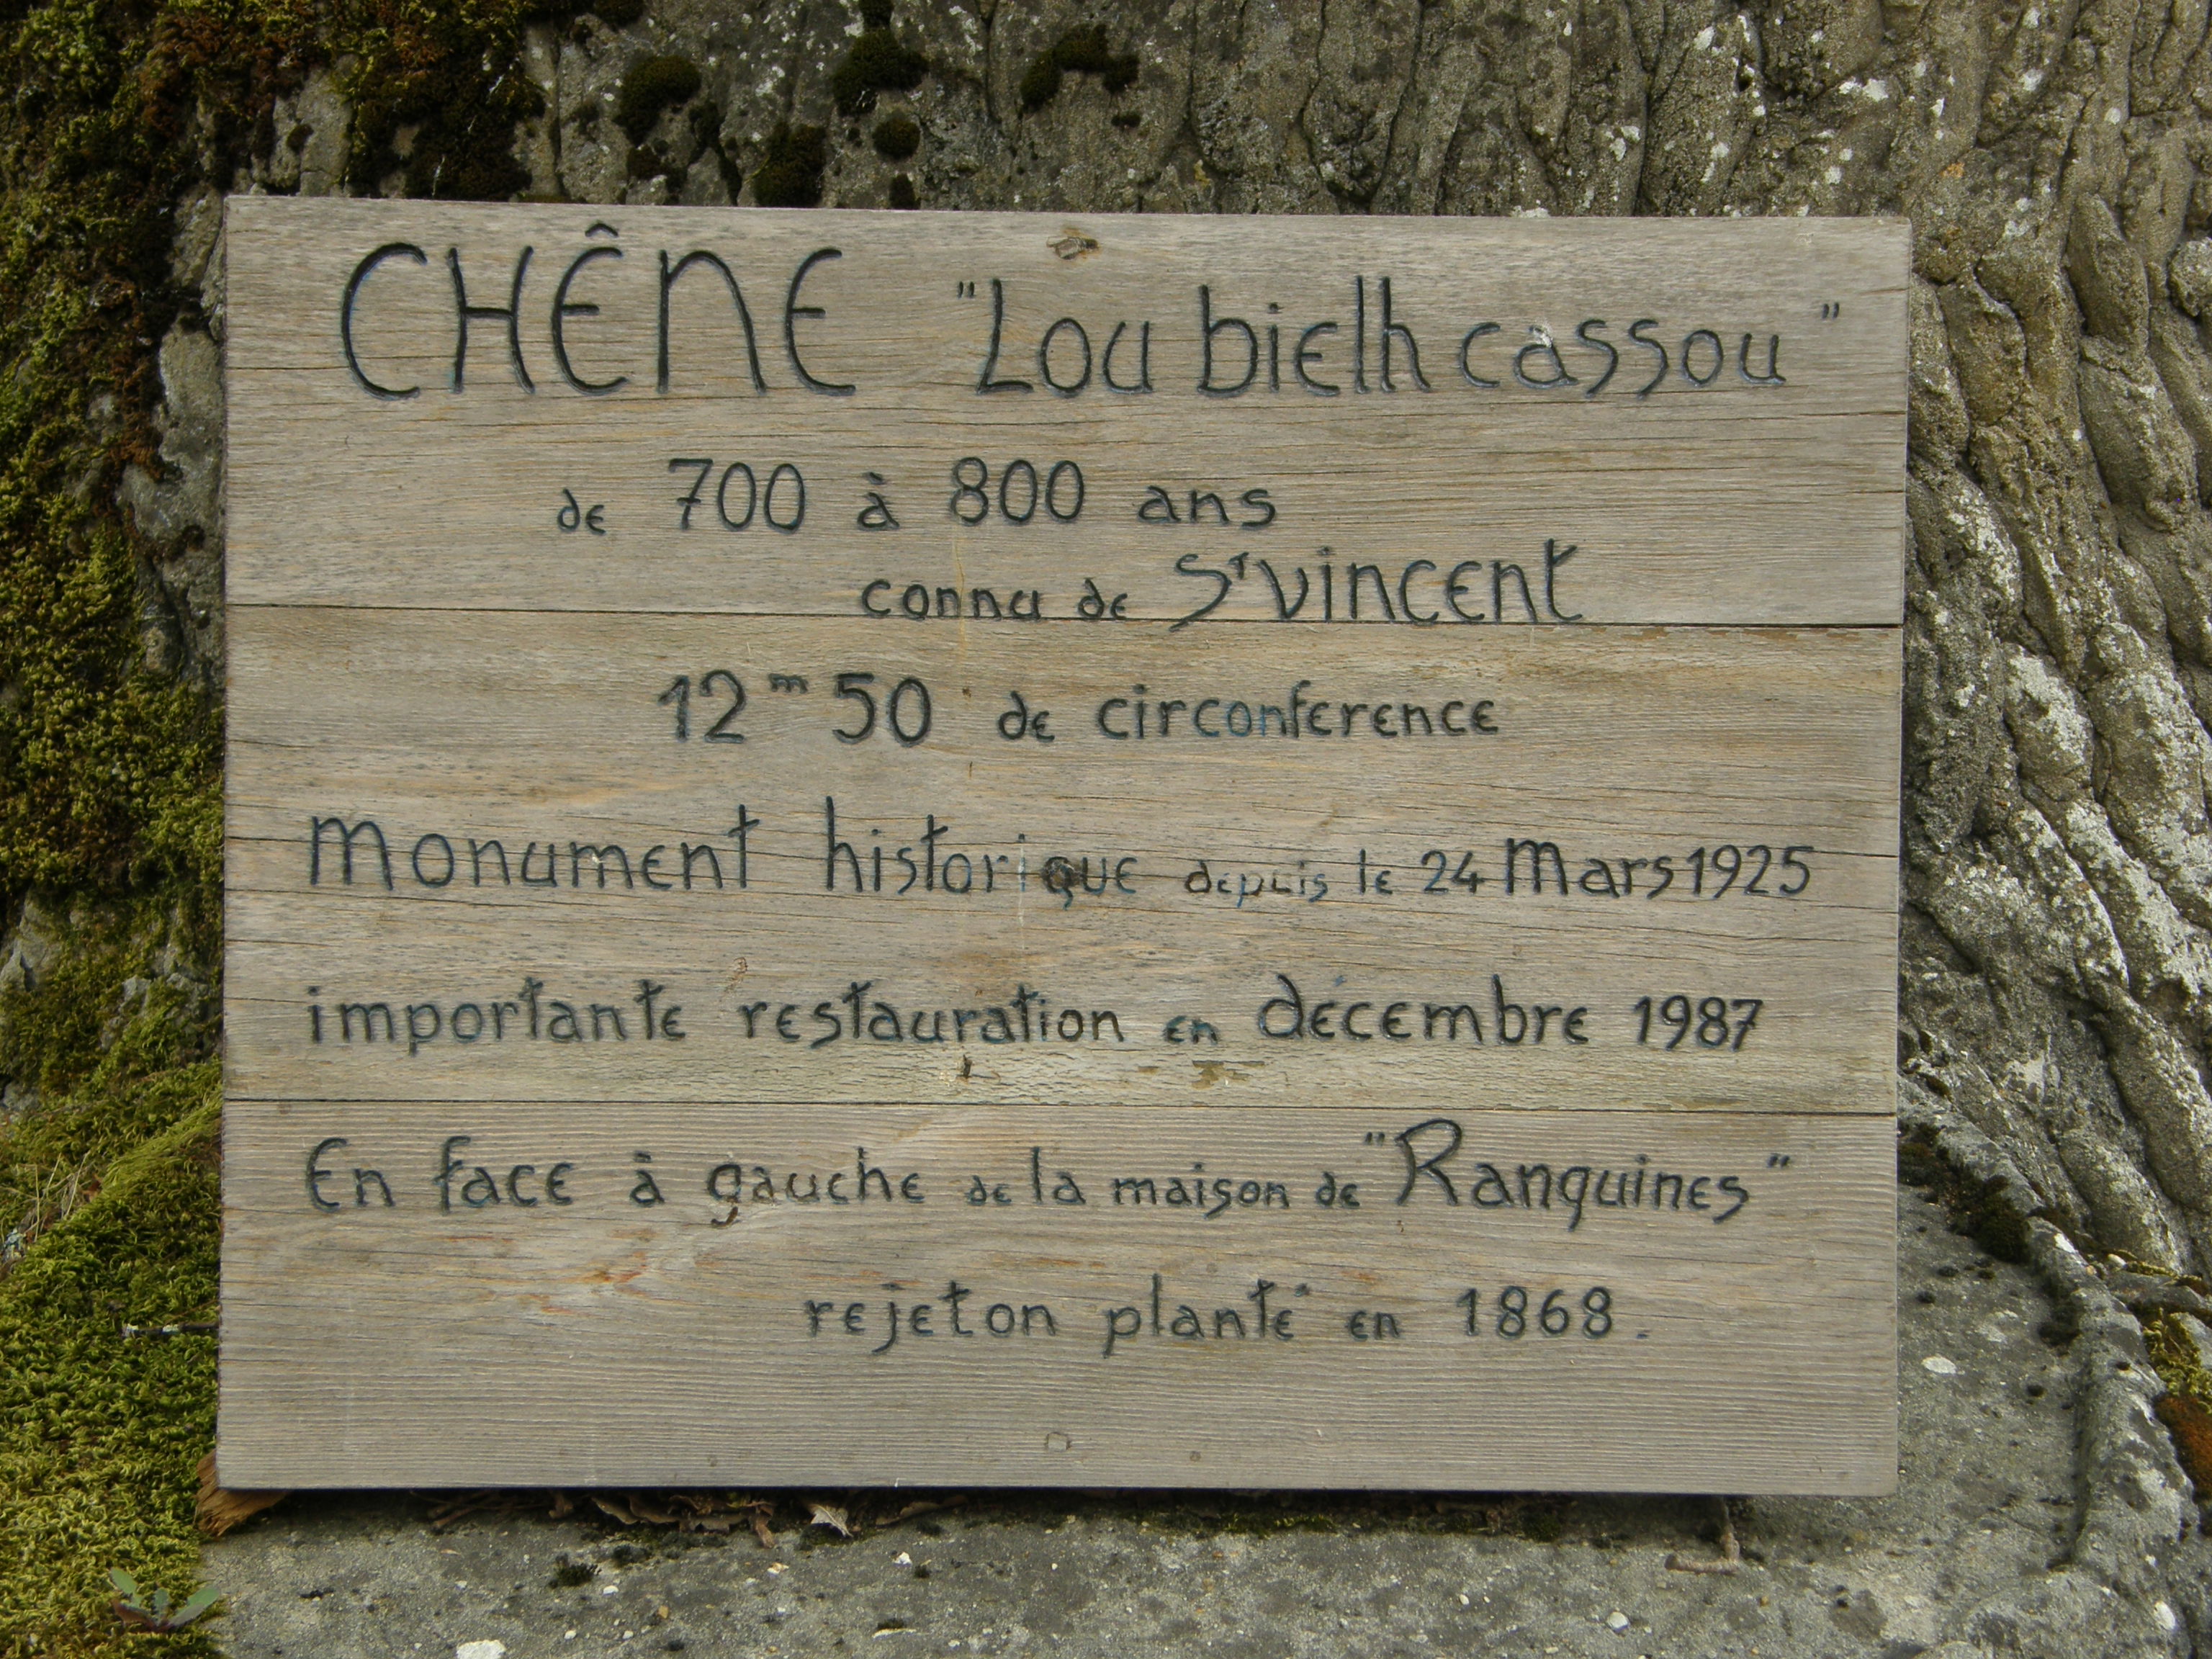 CHÊNE "Lou bielh cassou"
de 700 à 800 ans
connu de St vincent
12 m 50 de circonference
Monument historique depuis le 24 Mars 1925
importante restauration en décembre 1987
En face à gauche de la maison de "Ranquines"
rejeton planté en 1868.